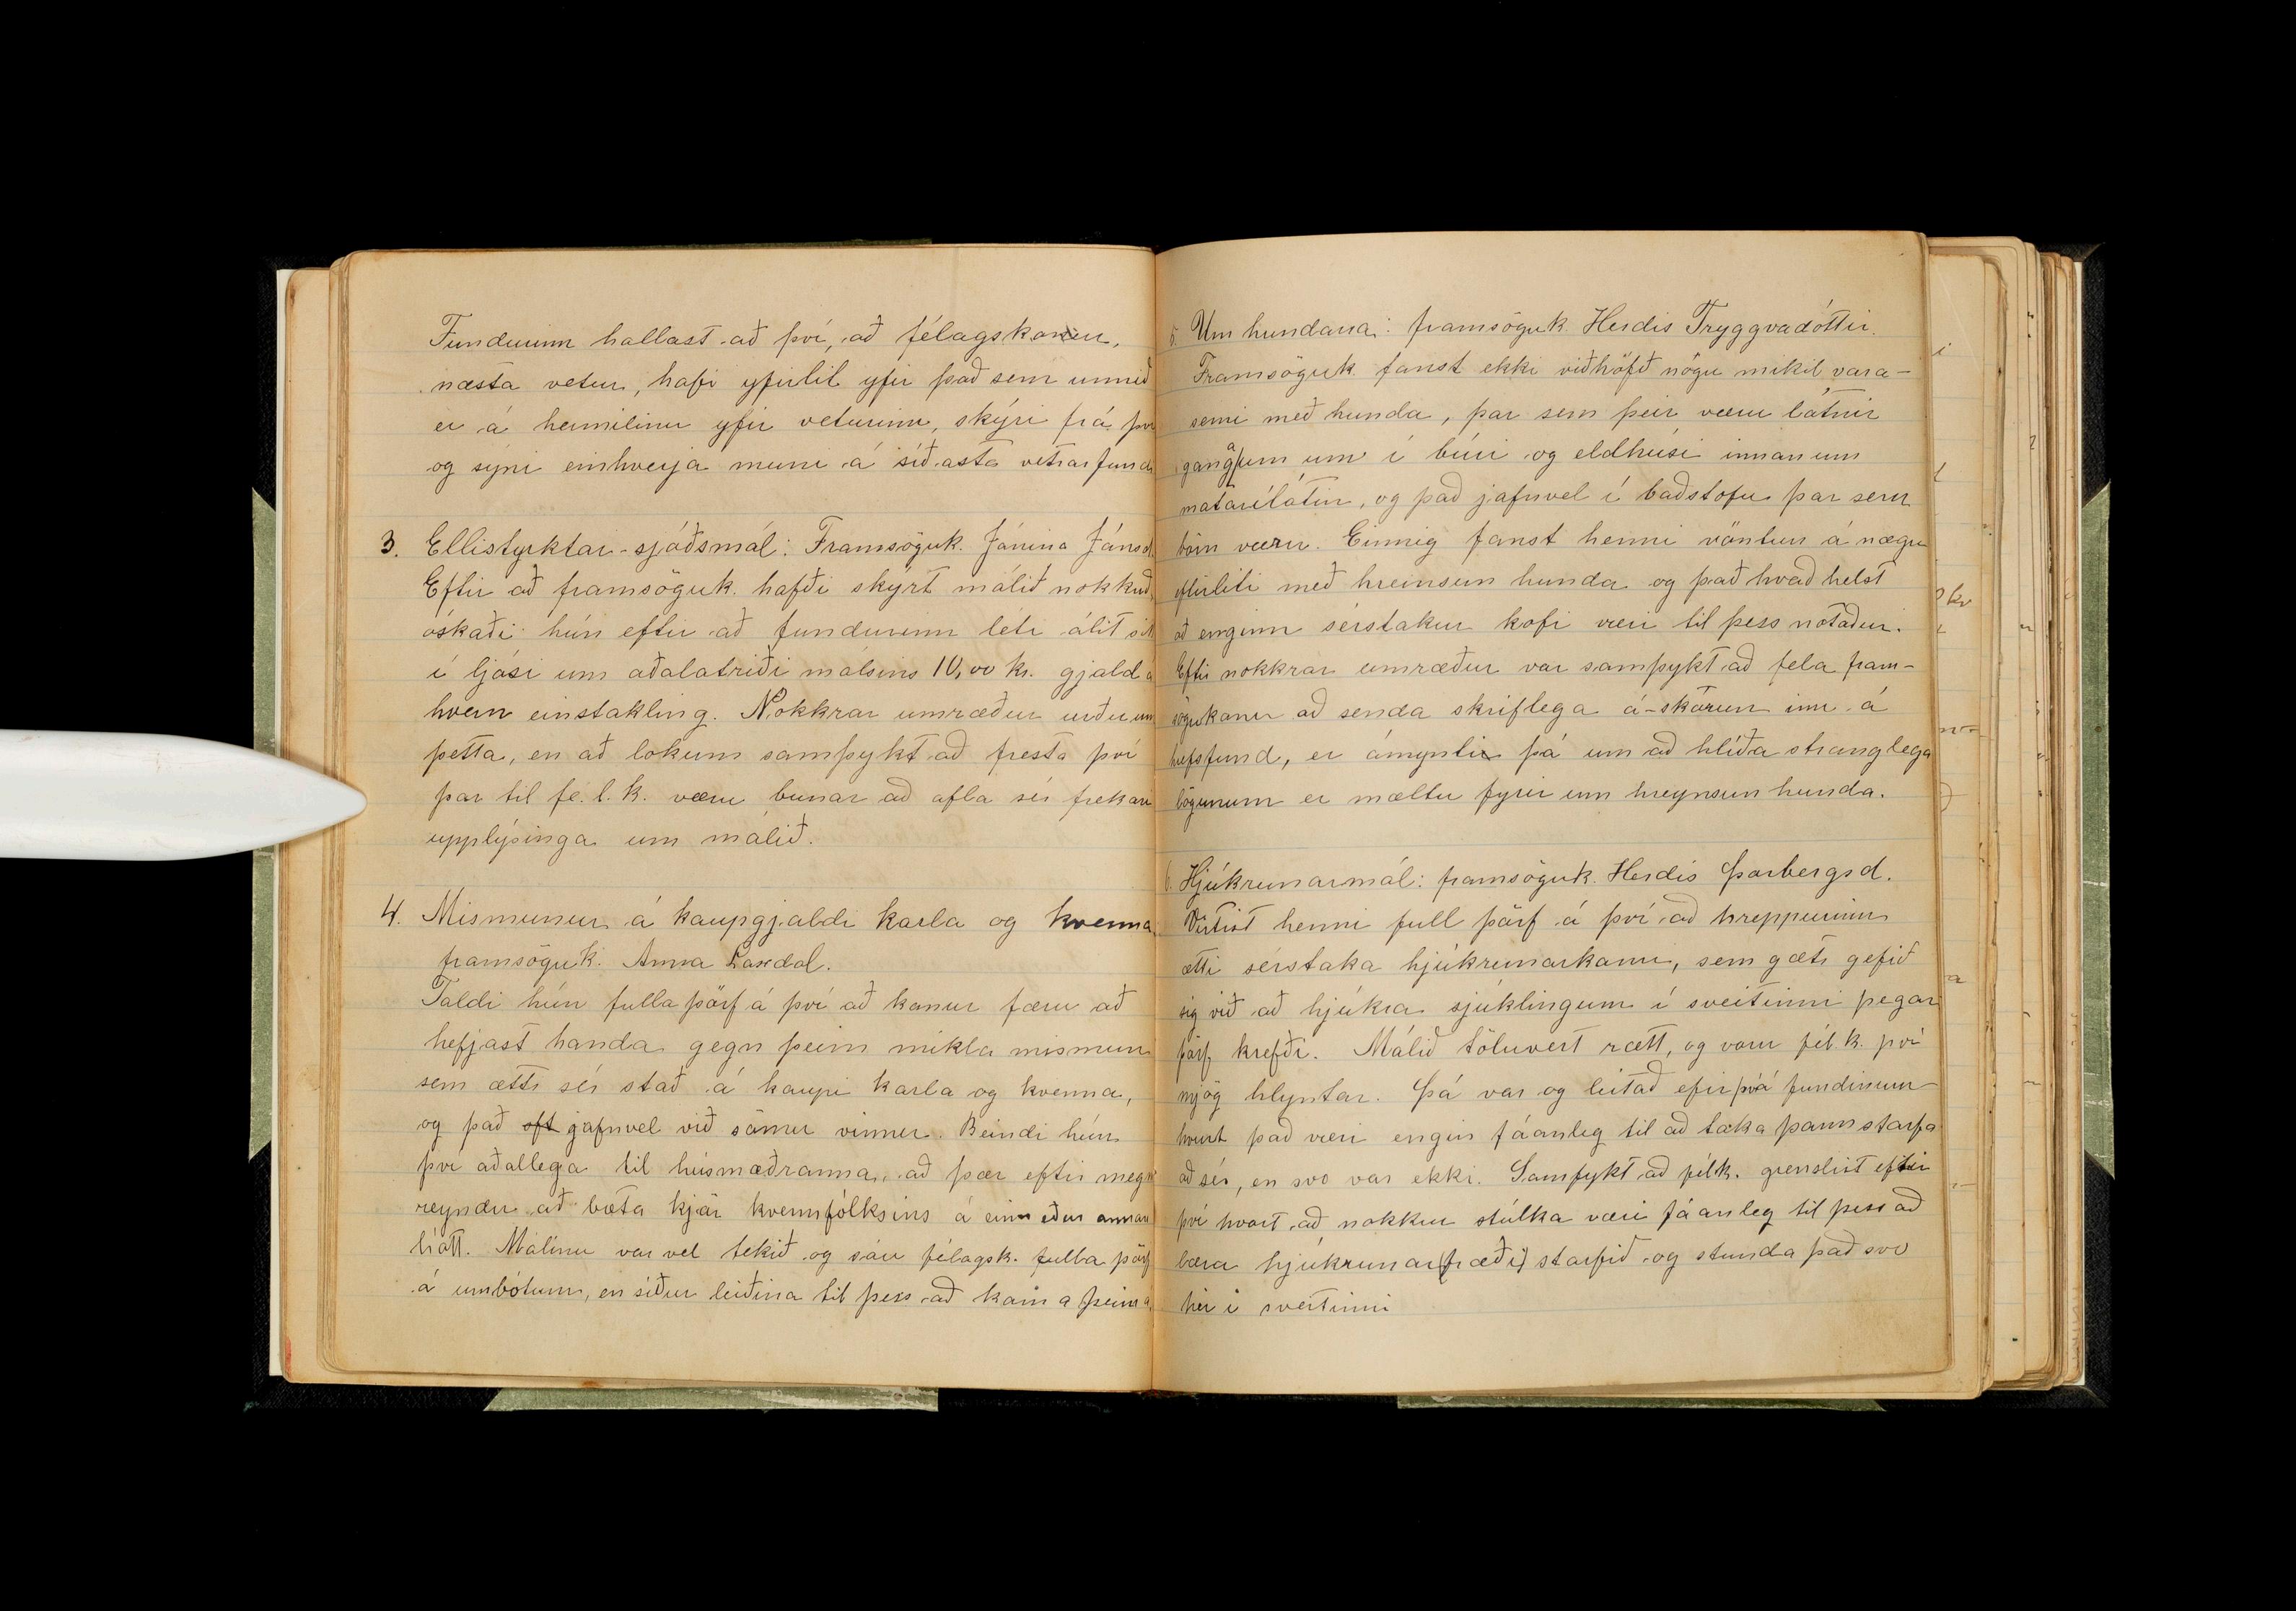 Fundurinn hallast að því, að félagskonur,
næsta vetur, hafi yfirlit yfir það sem unnið
er á heimilinu yfir veturinn, skýri frá því
og sýni einhverja muni á síðasta vetrarfundi
3. Ellistyrktar-sjóðsmál: Framsöguk. Jónína Jónsd.
Eftir að framsöguk. hafði skýrt málið nokkuð,
óskaði hún eftir að fundurinn léti álit sit
í ljósi um aðalatriði málsins 10,00 kr. gjald á
hvern einstakling. Nokkrar umræður urðu um
þetta, en að lokum samþykt að fresta því
þar til fe.l.k. væru bunar að afla sér frekari
upplýsinga um málið.
4. Mismunur á kaupgjaldi karla og kvenna,
framsöguk. Anna Laxdal.
Taldi hún fulla þörf á því að konur færu að
hefjast handa gegn þeim mikla mismun
sem ætti sér stað á kaupi karla og kvenna,
og það oft jafnvel við sömu vinnu. Beindi hún
því aðallega til húsmæðranna, að þær eftir megni
reyndu að bæta kjör kvennfólksins á einn eður annan
hátt. Málinu var vel tekið og sáu félagsk. fulla þörf
á umbótum, en síður leiðina til þess að koma þeim á.
5. Um hundana: framsöguk. Herdís Tryggvadóttir.
Framsöguk. fanst ekki viðhöfð nógu mikil vara-
semi með hunda, þar sem þeir væru látnir
ganga um í búri og eldhúsi innanum
matarílátin, og það jafnvel í baðstofu þar sem
börn væru. Einnig fanst henni vöntun á nægu
eftirliti með hreinsun hunda og það hvað helst
að enginn sérstakur kofi væri til þess notaður.
Eftir nokkrar umræður var samþykt að fela fram-
sögukonu að senda skriflega á-skorun inn á
hrefsfund, er ámynti þá um að hlíða stranglega
lögunum er mæltu fyrir um hreynsun hunda.
6. Hjúkrunarmál: framsöguk. Herdís Þorbergsd.
Virtist henni full þörf á því að hreppurinn
ætti sérstaka hjúkrunarkonu, sem gæti gefið
sig við að hjúkra sjúklingum í sveitinni þegar
þörf krefði. Málið töluvert rætt, og voru fél.k. því
mjög hlyntar. Þá var og leitað efir því á fundinum
hvort það væri engin fáanleg til að taka þann starfa
að sér, en svo var ekki. Samþykt að félk. grensluðust eftir
því hvort að nokkur stúlka væri fáanleg til þess að
læra hjúkrunar(fræði) starfið og stunda það svo
hér í sveitinni